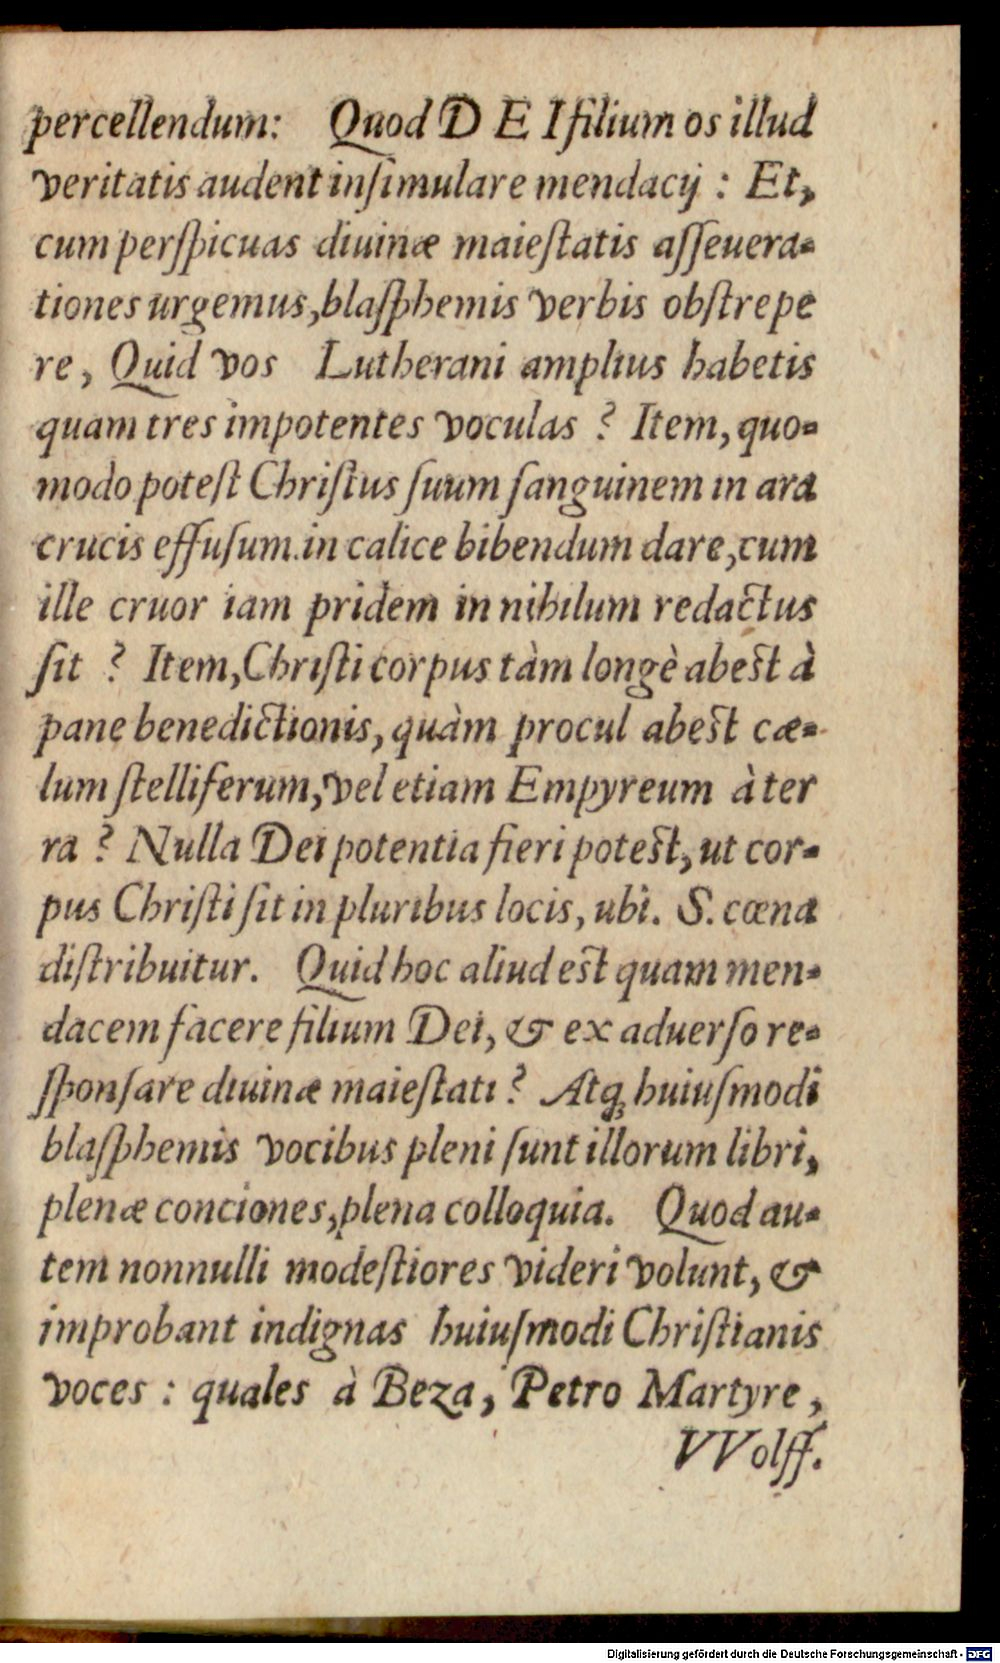 percellendum: Quod DEI filium os illud
veritatis audent inſimulare mendacij : Et,
cum perſpicuas diuinæ maieſtatis aſſeuera-
tiones urgemus, blaſphemis verbis obſtrepe
re, Quid vos Lutherani amplius habetis
quam tres impotentes voculas ? Item, quo-
modo poteſt Chriſtus ſuum ſanguinem in ara
crucis effuſum in calice bibendum dare, cum
ille cruor iam pridem in nihilum redactus
ſit ? Item, Chriſti corpus tàm longè abeſt à
pane benedictionis, quàm procul abeſt cæ-
lum ſtelliferum, vel etiam Empyreum à ter
ra ? Nulla Dei potentia fieri poteſt, ut cor-
pus Chriſti ſit in pluribus locis, ubi. S. cœna
diſtribuitur. Quid hoc aliud eſt quam men-
dacem facere filium Dei, & ex aduerſo re-
ſponſare diuinæ maieſtati ? Atq; huiuſmodi
blaſphemis vocibus pleni ſunt illorum libri,
plenæ conciones, plena colloquia. Quod au-
tem nonnulli modeſtiores videri volunt, &
improbant indignas huiuſmodi Chriſtianis
voces : quales à Beza, Petro Martyre,
VVolff.
Digitalisierung gefördert durch die Deutsche Forschungsgemeinschaft - DFG